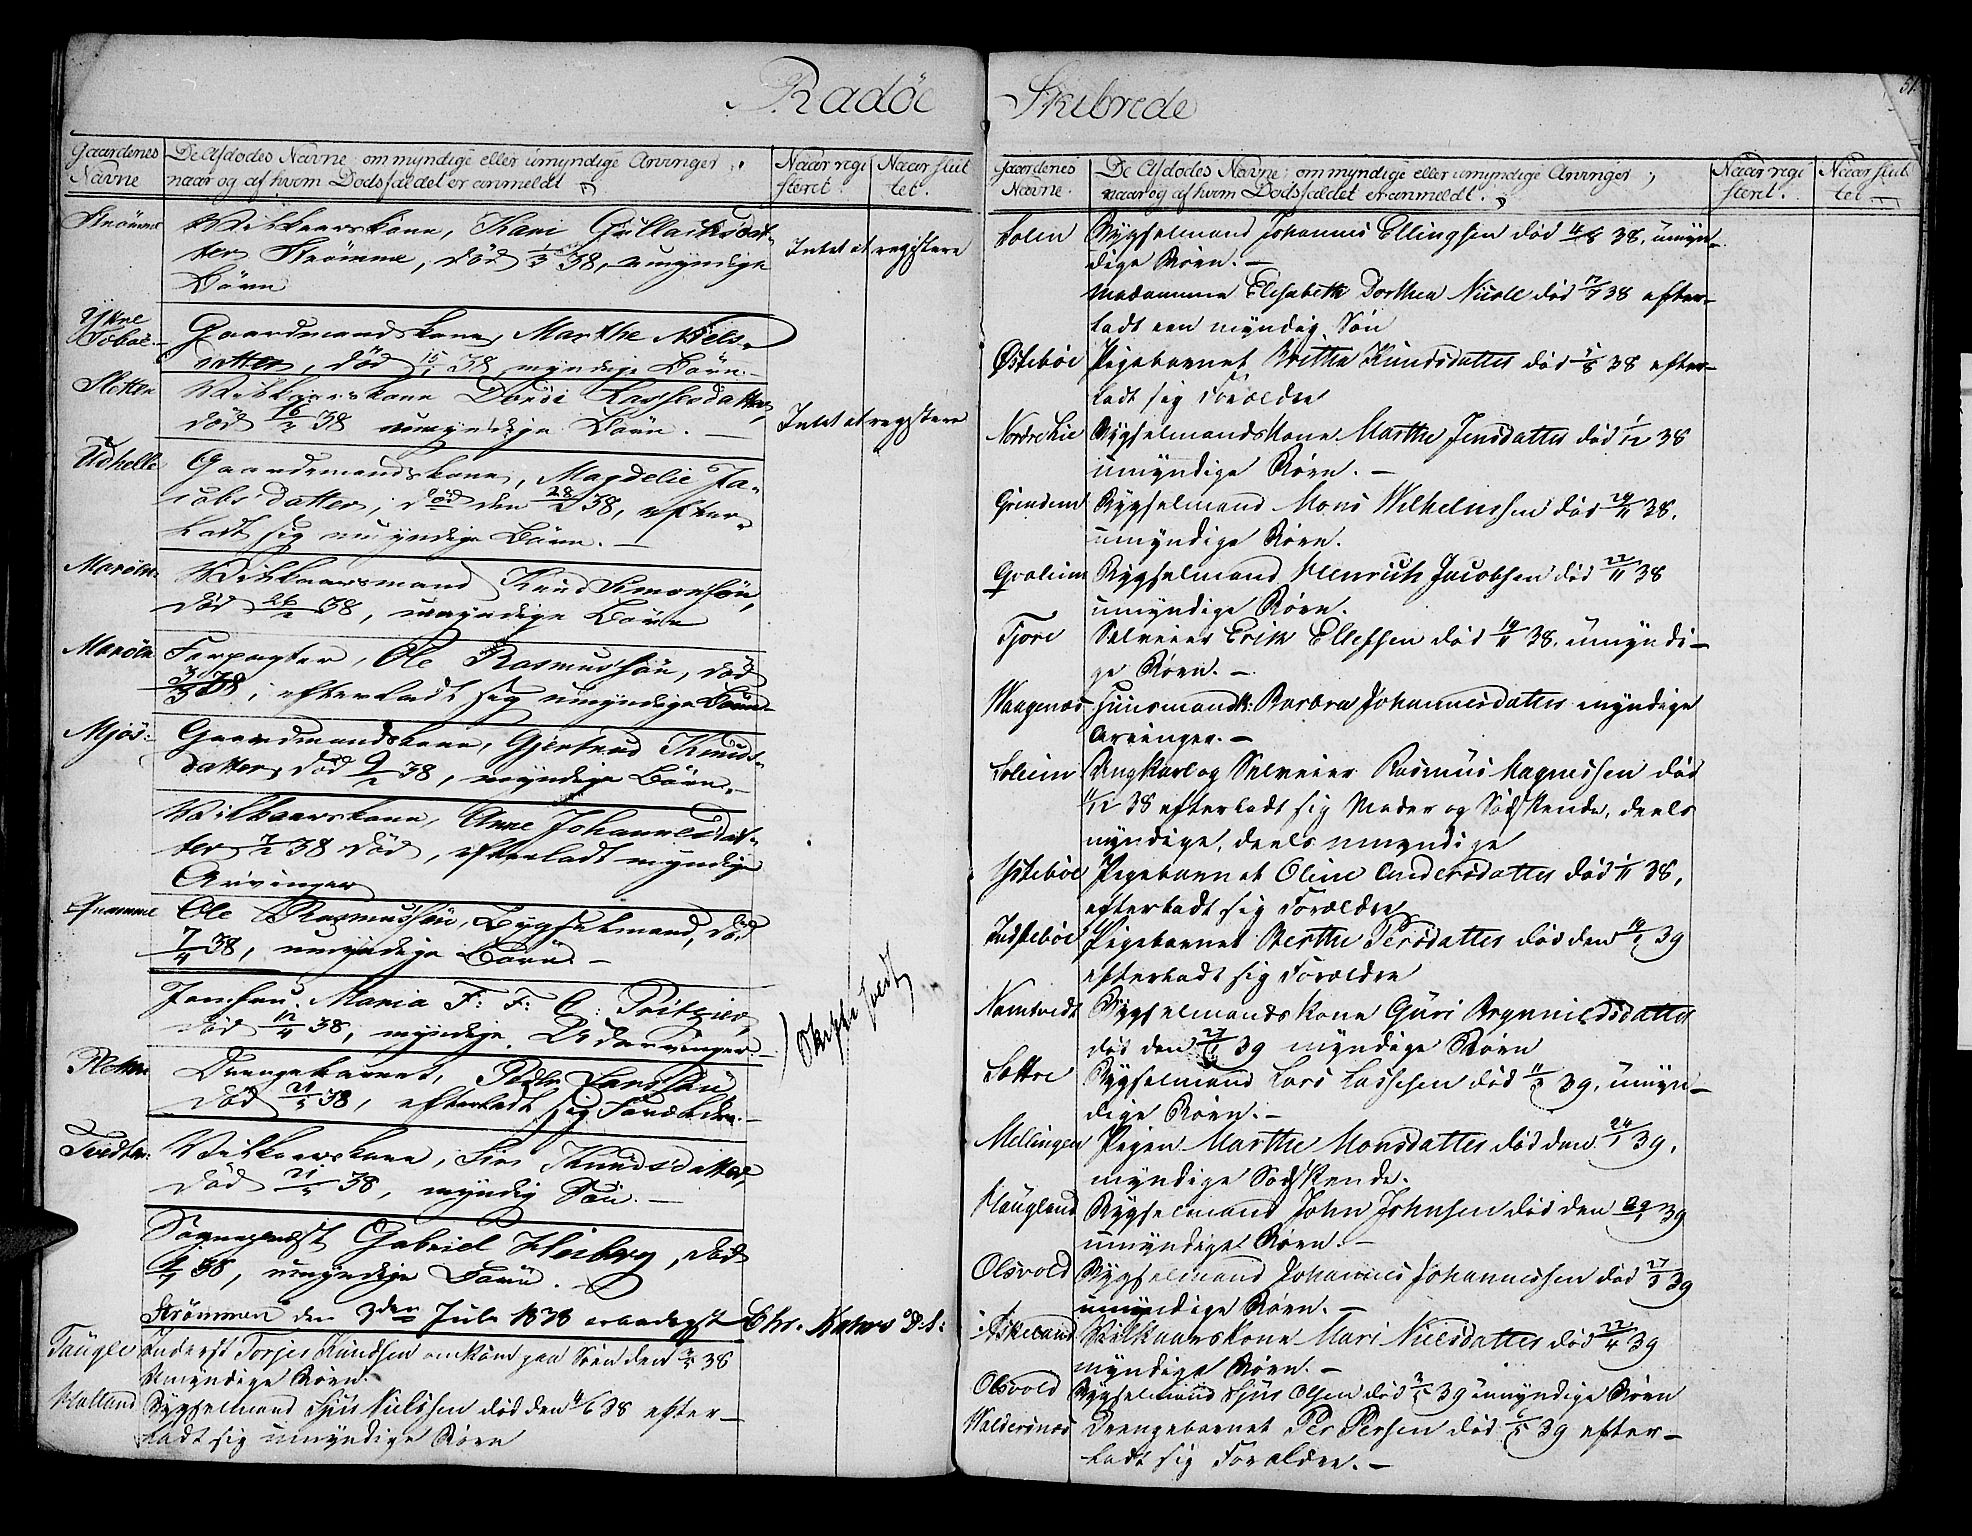 Radöe
Gaardenes Navne
De Afdödes Navne, om myndige eller umyndige Arvinger,
naar og af hvem Dödsfaldet er anmeldt
Naar regi
steret.
Naar slut
tet.
Strömme
Vilkaarskone, Kari Gullachsdat-
ter Strömme, död 1/3 38, umyndige
Börn
Intet at registere
Ytre
Toboe
Gaardmandskone, Marthe Niels-
datter, död 38, myndige Börn.
Sletten
Vilkaarskone Dordi Lassesdatter
död 16/2 38 umyndige Börn. —
Intet at registere
Udhelle
Gaardmandskone, Magdelie Ja-
cobsdatter, död den 28/2 38, efter-
ladt sig umyndige Börn. —
Maröen
Vilkaarsmand Knud Simonsön,
död 26/2 38, umyndige Börn
Maröen
Forpagter, Ole Rasmussön, död
38, efterladt sig umyndige Börn
Mjös:
Gaardmandskone, Gjertrud Knuds-
datter, död 9/2 38, myndige Börn.
Vilkaarskone, Anne Johannesdat-
ter 7/2 38 död, efterladt myndige
Arvinger
Qvamme
Ole Rasmussön, Bygselmand, död
7/4 38, umyndige Börn. —
Jomfru Maria F: F: C: Pritzier,
död 12/4 38, myndige Udarvinger
Sletten
Drengebarnet, Peder Larssön,
död 21/5 38, efterladt sig Forældre.
Tvedten
Vilkaarskone, Siri Knudsdatter,
död 21/5 38, myndig Sön. —
Sognepræst Gabriel Heiberg, död
38, umyndige Börn. —
Skiftet holdt
Strömmen den 3den Juli 1838 erbödigst
Taugle
Inderst Torjer Knudsen omkom paa Söen den 38
Umyndige Börn.
Kalland
Bygselmand Sjur Nielssen död den 4/6 38 efter-
ladt sig umyndige Börn
Skibrede
51
Gaardenes
Navne.
De Afdödes Navne, om myndige eller umyndige Arvinger,
naar og af hvem Dödsfaldet er anmeldt.
Naar regi
steret.
Naar slut
tet
Solem
Bygselmand Johannes Ellingsen död 38, umyn-
dige Börn. —
Madamme Elisabeth Dorthea Nicoll död 38 efter-
ladt een myndig Sön
Østeböe
Pigebarnet Brithe Knudsdatter död 38 efter-
ladt sig Forældre
Nordre Lie
Bygselmandskone Marthe Jensdatter död 1/12 38
umyndige Börn. —
Grindem
Bygselmand Mons Wilhelmsen död 38.
umyndige Börn.
Bygselmand Henrich Jacobsen död 22/11 38
umyndige Börn.
Tjore
Selveier Erik Ellefsen död 38. umyndi-
ge Börn. —
Waagenæs
Huusmandsk: Barbra Johannesdatter myndige
Arvinger. —
Solem
Ungkarl og Selveier Rasmus Magnessen död
1/12 38 efterladt sig Moder og Södskende, deels
myndige, deels umyndige
Ystebóe
Pigebarnet Oline Andersdatter död 38,
efterladt sig Forældre
Indreböe
Pigebarnet Berthe Persdatter död den 39
efterladt sig Forældre
Namtvedt
Bygselmandskone Guri Brynnieldsdatter
död den 39 myndige Börn
Sættre
Bygselmand Lars Lassesen död 39, umyn-
dige Börn. —
Mellingen
Pigen Marthe Monsdatter död den 24/1 39.
myndige Södskende.
Haugland
Bygselmand John Johnsen död den 39
umyndige Börn. —
Olsvold
Bygselmand Johannes Johannessen död 27/3 39
umyndige Börn. —
Askeland
Vilkaarskone Mari Nielsdatter död 22/4 39
myndige Börn. —
Olsvold
Bygselmand Sjur Olsen död 39 umyndige Börn
Waldersnæs
Drengebarnet Per Persen död 39 efter-
ladt sig Forældre. —